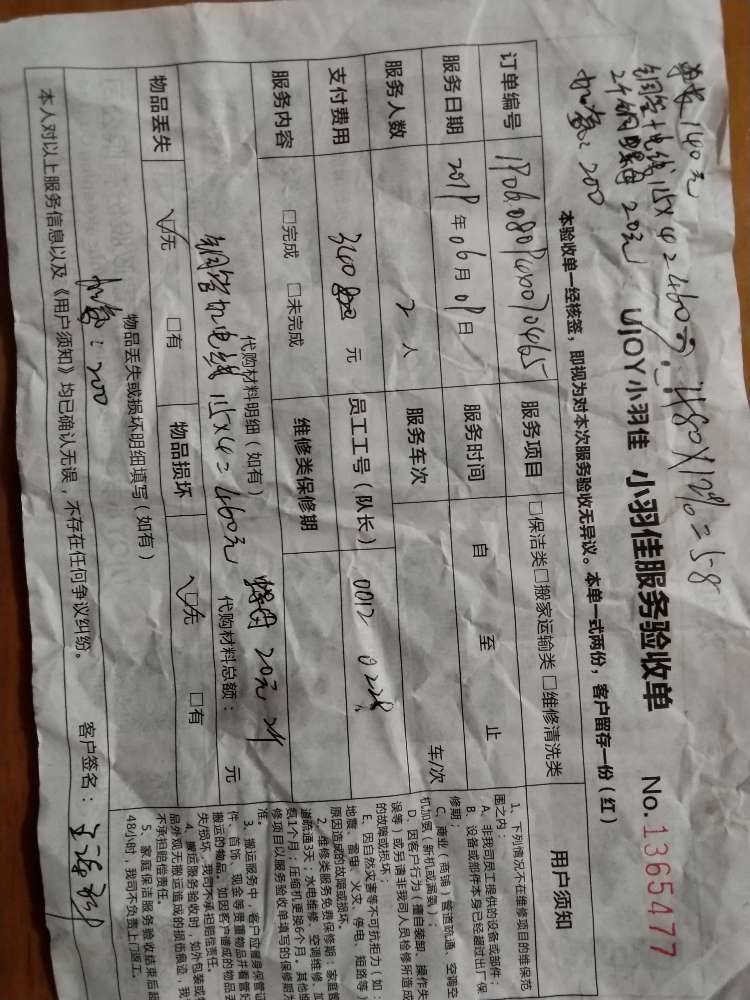 140元
铜管+电线 115×4=460元
480×12%=58
2个铜螺母 20元
加氨:200
UJOY小羽佳 小羽佳服务验收单
No.1365477
本验收单一经核签,即视为对本次服务验收无异议。本单一式两份,客户留存一份(红)
订单编号
服务项目 □保洁类□搬家运输类 □维修清洗类
服务日期 年06月09日 服务时间 自 至 止
服务人数 2人 服务车次 车/次
支付费用 元 员工工号(队长) 0012 0228
服务内容 □完成 □未完成 维修类保修期
代购材料明细(如有)
铜管加电线 115×4=460元 螺母 20元 2个
代购材料总额: 元
物品丢失 □无 □有 物品损坏 □无 □有
物品丢失或损坏明细填写(如有)
加氨:200
本人对以上服务信息以及《用户须知》均已确认无误,不存在任何争议纠纷。 客户签名:
用户须知
1、下列情况不在维修项目的维保范
围之内:
A、非我司员工提供的设备或部件;
B、设备或部件本身已经超过出厂保
修期;
C、商业(商铺)管道疏通、空调空
机加氨(新机或漏氨);
D、因客户行为(擅自装卸、操作失
误等)或另请非我司人员检修所造成
的故障或损坏;
E、因自然灾害等不可抗拒力(如:
地震、雷电、火灾、停电、短路等)
原因造成的故障或损坏。
2、维修类服务免费保修期:家庭管
道疏通3天;水电维修、空调维修、加
氨1个月;压缩机更换6个月。其他维
修项目以服务验收单填写的保修期为
准。
3、搬运服务中,客户应自身保管证
件、首饰、现金等贵重物品并看管好
搬运的物品。如因客户造成的物品丢
失/损坏,我司不承担赔偿责任。
4、搬运服务验收时,如外包装或物
品外观无搬运造成的损坏痕迹,我司
不承担赔偿责任。
5、家庭保洁服务验收结束后超
48小时,我司不负责上门返工。